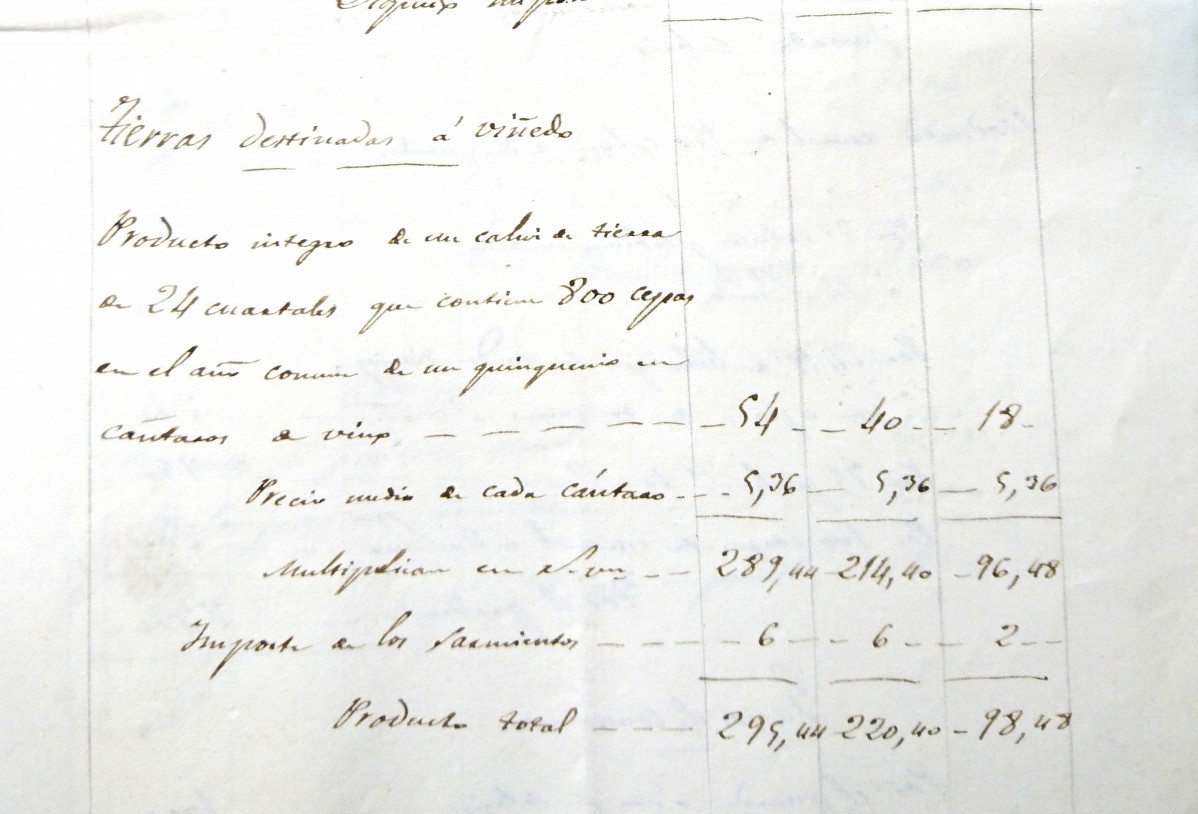 Tierras destinadas á viñedo
Producto integro de un cahiz de tierra
de 24 cuartales que contiene 800 cepas
en el año comun de un quinquenio en
cántaros de vino — — — — — — 54 — — 40 — — 18 —
Precio medio de cada cántaro — — 5,36 — 5,36 — 5,36
Multiplican en R. vn — — 289,44 — 214,40 — 96,48
Importe de los Sarmientos — — — — 6 — — 6 — — 2 — —
Producto total — — — 295,44 — 220,40 — 98,48